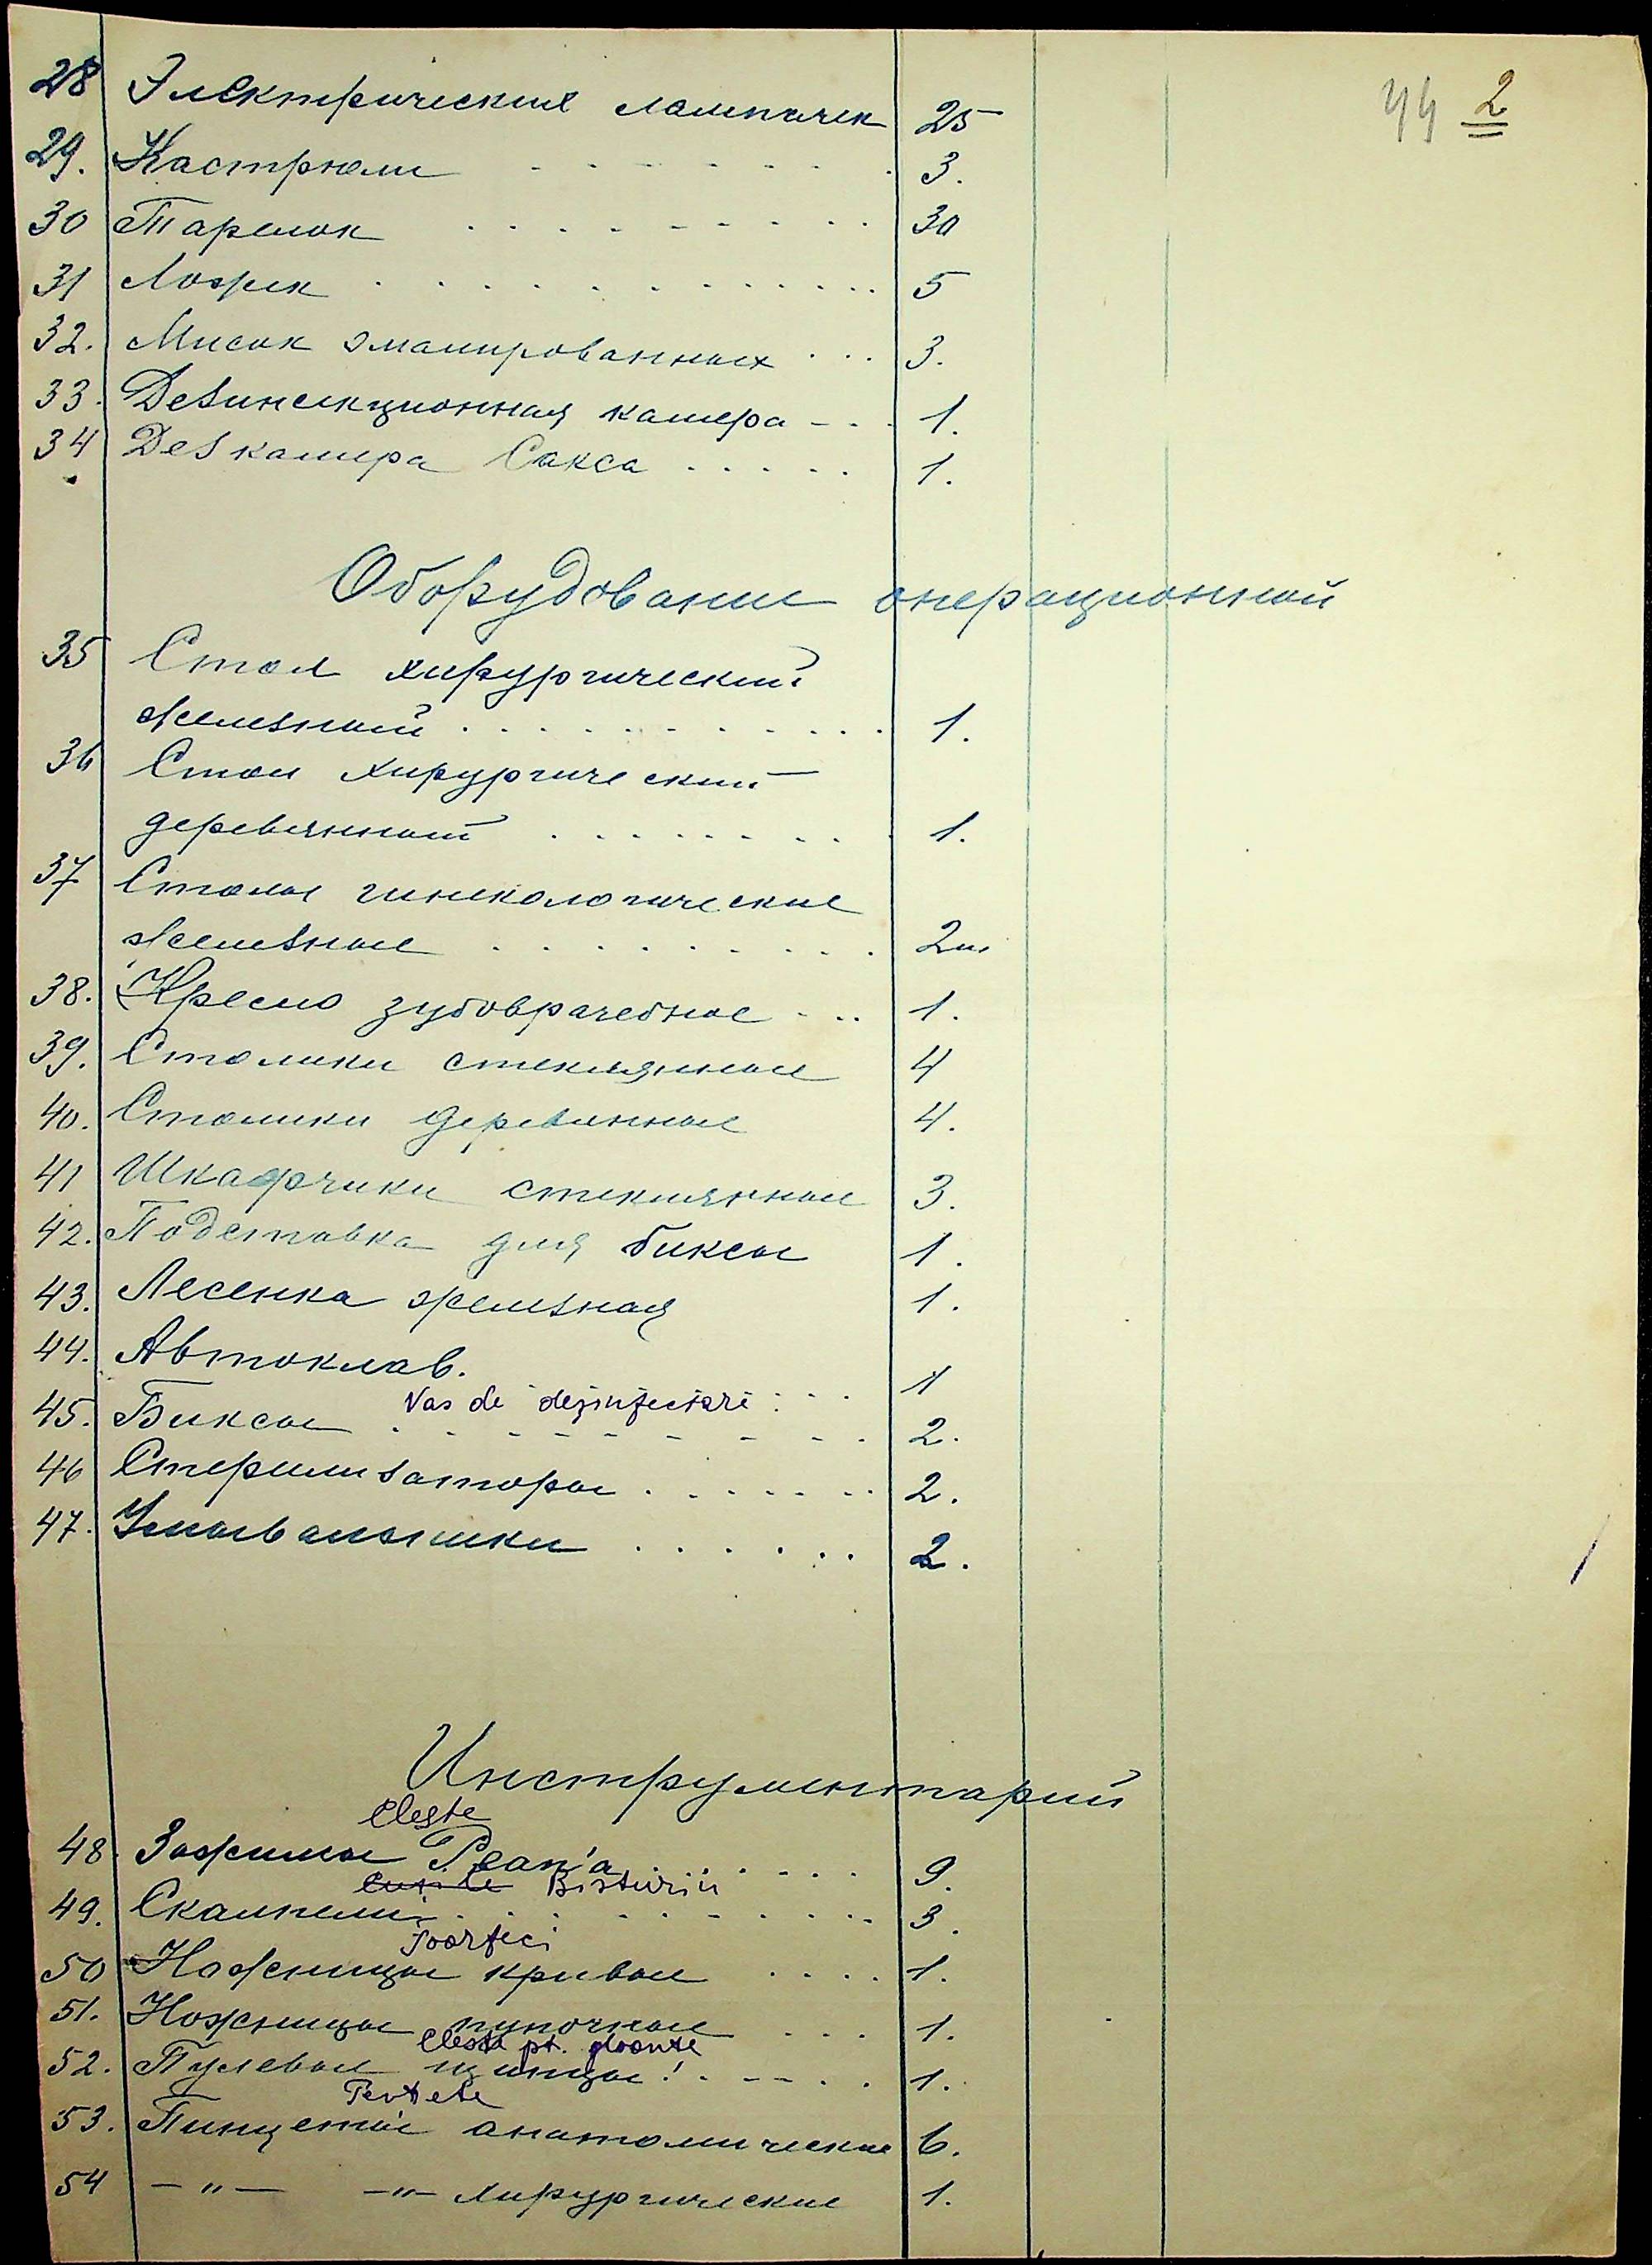 44 2
28 Электрические лампочек 25
29. Кастрюли . . . . . . . 3.
30 Тарелок . . . . . . . . . 30
31 Ложек . . . . . . . . . . . 5
32. Мисок эмалированных . . . 3.
33. Деzинсекционная камера - . . 1.
34 Деzкамера Сакса . . . . . 1.
Оборудование операционной
35 Стол хирургический
желеzный . . . . . . . . . . 1.
36 Стол хирургический
деревянный . . . . . . . . 1.
37 Столы гинекологические
желеzные . . . . . . . . . 2
38. Кресло зубоврачебное - . . 1.
39. Столики стеклянные 4
40. Столики деревянные 4.
41 Шкафчики стеклянные 3.
42. Подставка для биксы 1.
43. Лесенка желеzная 1.
44. Автоклав. 1
Vas de dezinfectare
45. Биксы . . . . . . . . . 2.
46 Стерилиzаторы . . . . . . . 2.
47. Умывальники . . . . . . 2.
Инструментарий
Cleşte
48. Зажимы Pean'a . . . . . . 9.
Bisturiu
49. Скальпели . . . . . . . . . 3.
Foarfeci
50 Ножницы кривые . . . . 1.
51. Ножницы пупочные . . . 1.
Cleste pt. gloante
52. Пулевые щипцы! . - - . . 1.
53. Пинцеты анатомические 6.
54 - " - - " - хирургические 1.